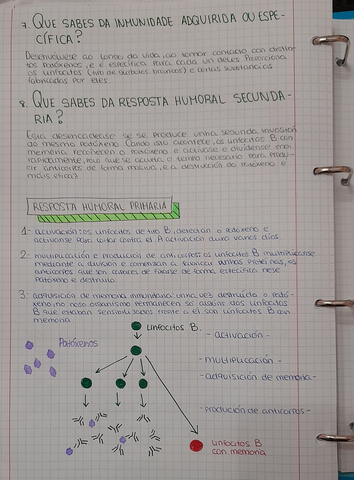 7. QUE SABES DA INMUNIDADE ADQUIRIDA OU ESPE-
CÍFICA?
Desenvólvese ao longo da vida, ao tomar contacto con distin-
tos patóxenos, e é específica para cada un deles. Interveñen
os linfocitos (tipo de glóbulos brancos) e certas sustancias
fabricadas por eles.
8. QUE SABES DA RESPOSTA HUMORAL SECUNDA-
RIA?
Esta desencadéase se se produce unha segunda invasión
do mesmo patóxeno. Cando isto acontece, os linfocitos B con
memoria recoñecen o patóxeno e actívanse e divídense moi
rapidamente, polo que se acurta o tempo necesario para produ-
cir anticorpos de forma masiva, e a destrución do patóxeno é
máis eficaz.
RESPOSTA HUMORAL PRIMARIA
1- activación: os linfocitos de tipo B, detectan o patóxeno e
actívanse para loitar contra el. A activación dura varios días.
2- multiplicación e produción de anticorpos: os linfocitos B multiplícanse
mediante a división e comenzan a fabricar unhas proteínas, os
anticorpos que son capaces de fixarse de forma específica nese
patóxeno e destruílo.
3- adquisición de memoria inmunitaria: unha vez destruído o pató-
xeno, no noso organismo permanecen só algúns dos linfocitos
B que estaban sensibilizados fronte a el: son linfocitos B con
memoria.
Patóxenos
linfocitos B.
- activación -
- multiplicación -
- adquisición de memoria -
- produción de anticorpos -
linfocitos B
con memoria